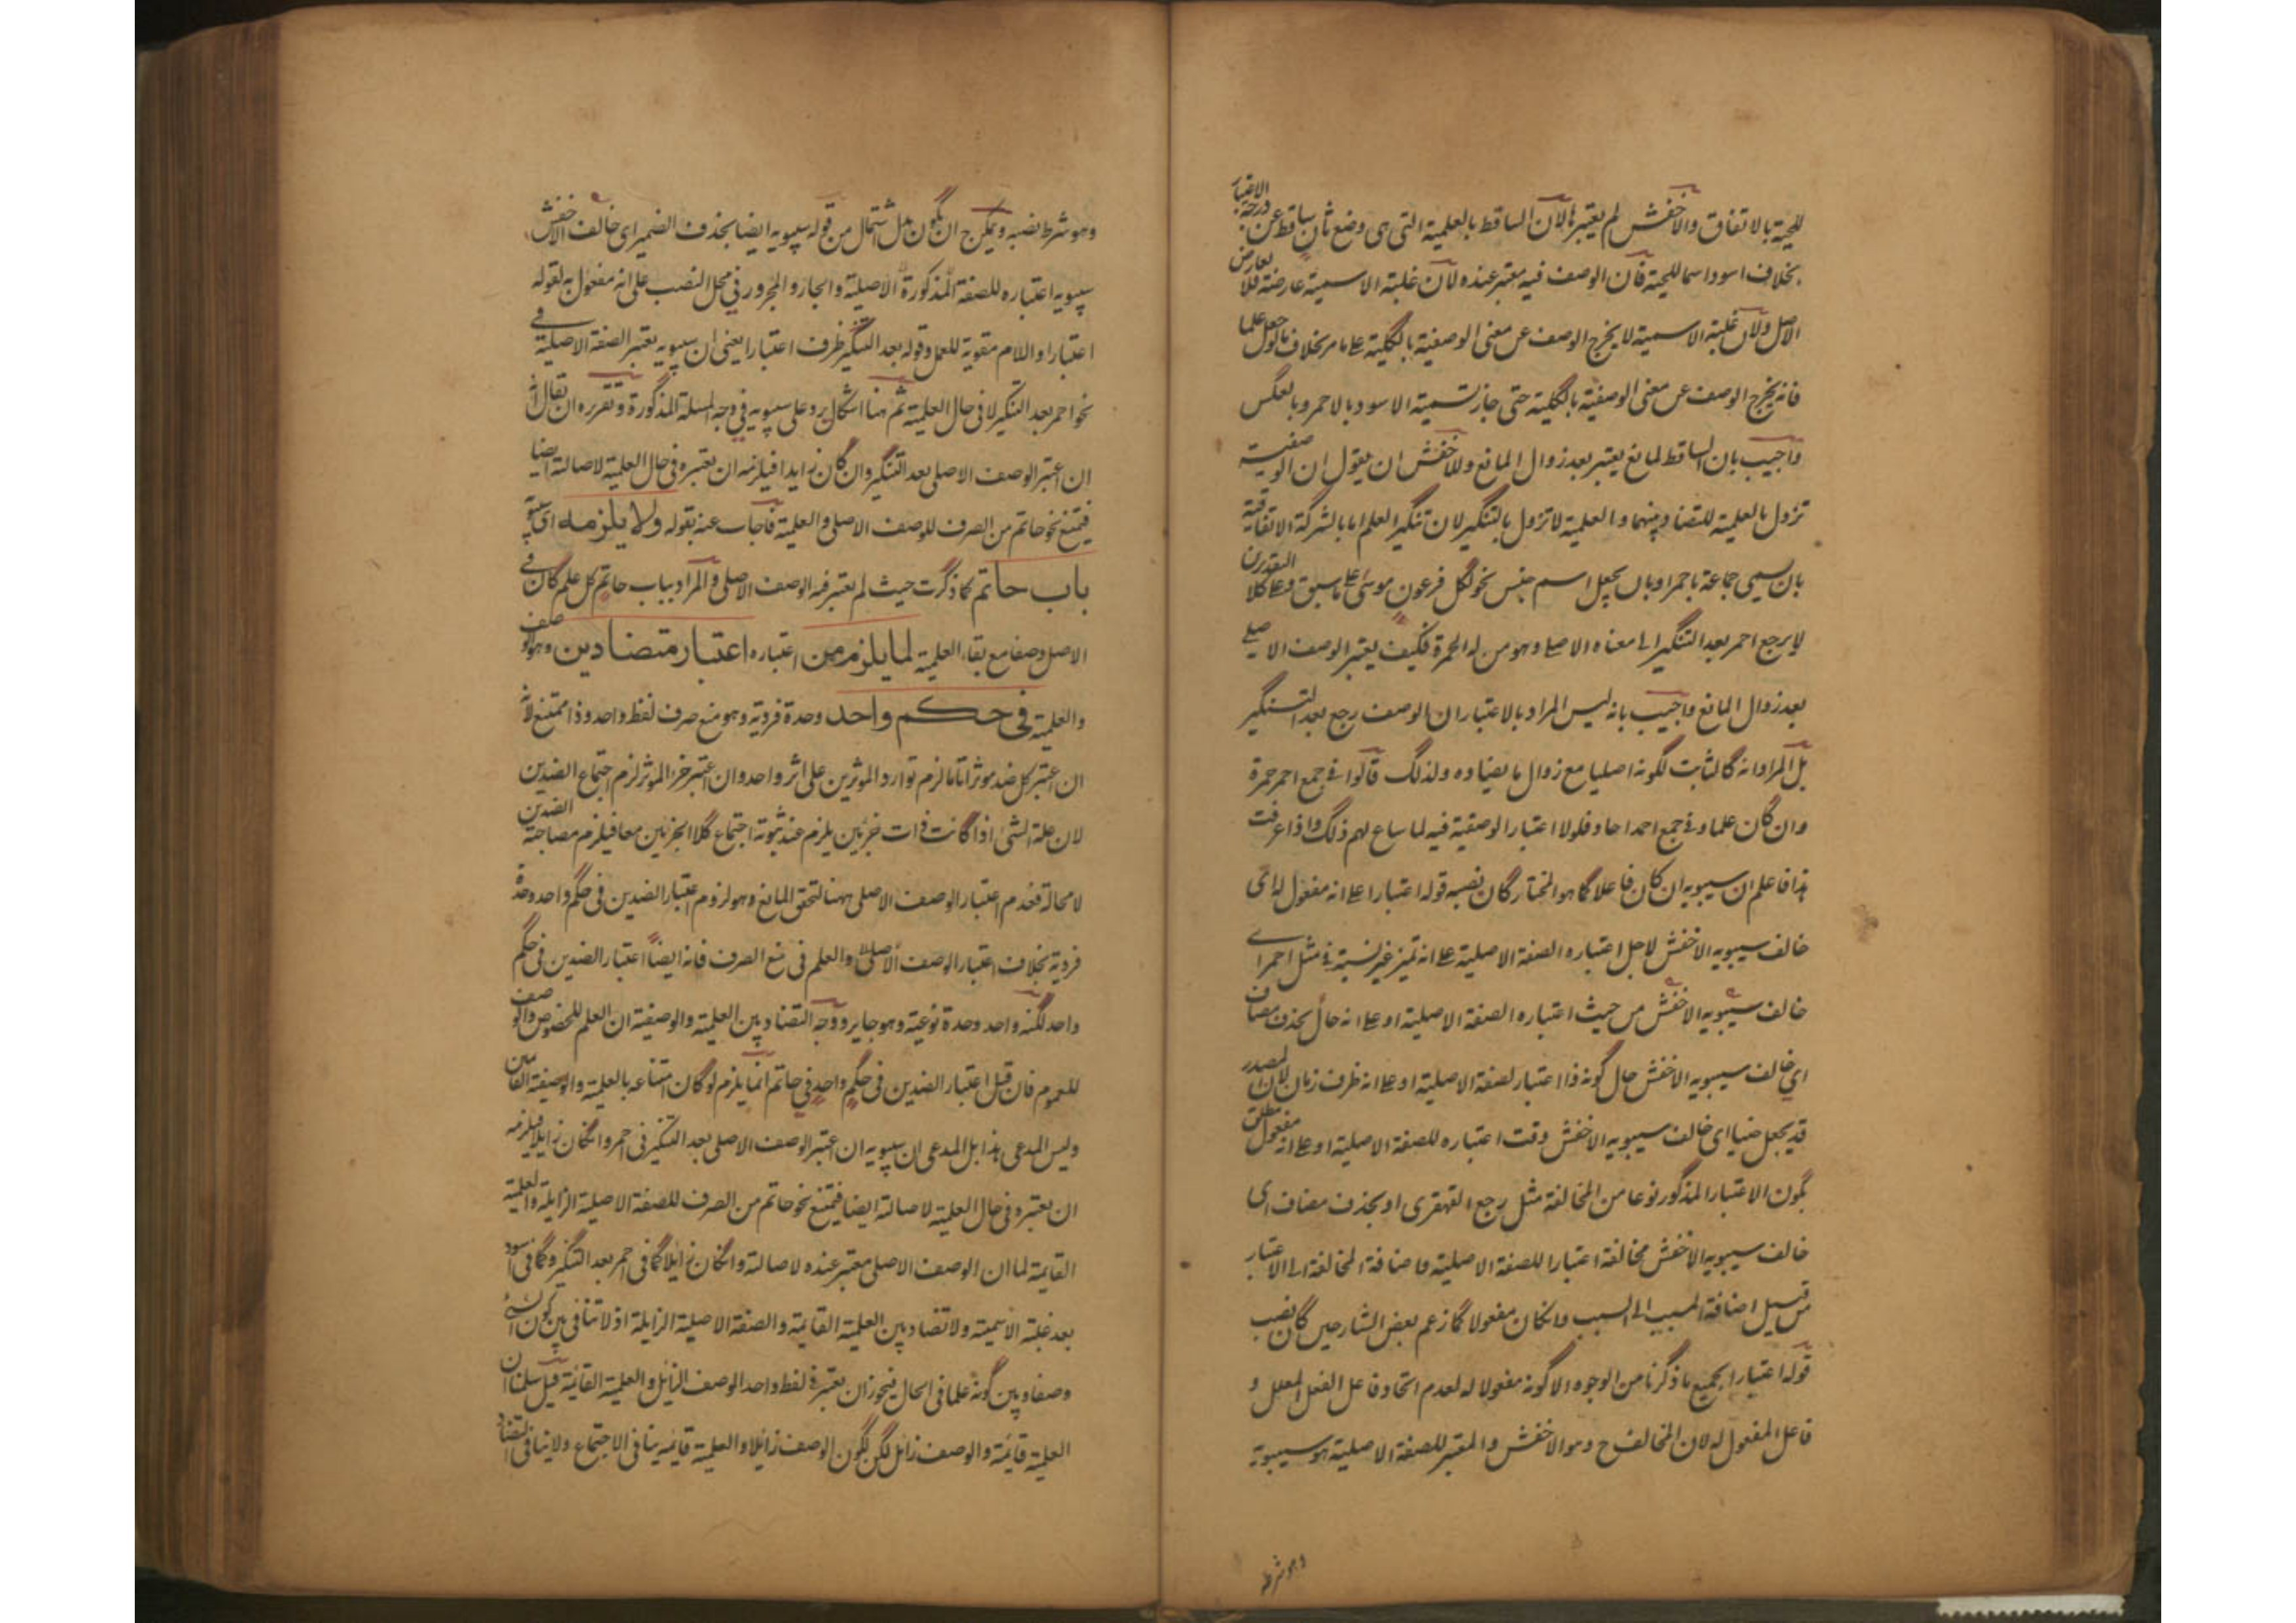 للحية بالاتفاق والاخفش لم يعتبرها لان الساقط بالعلمية التى هى وضع ثان ساقط عن درجة الاعتبار
بخلاف اسود اسما للحية فان الوصف فيه معتبر عنده لان غلبة الاسمية عارضة فلا تعارض
الاصل ولان غلبة الاسمية لا يخرج الوصف عن معنى الوصفية بالكلية على ما مر بخلاف ما لو جعل علما
فانه يخرج الوصف عن معنى الوصفية بالكلية حتى جاز تسمية الاسود بالاحمر وبالعكس
واجيب بان الساقط لمانع يعتبر بعد زوال المانع وللاخفش ان يقول ان الوصفية
تزول بالعلمية للتضاد بينهما والعلمية لا تزول بالتنكير لان تنكير العلم اما بالشركة الاتفاقية
بان سمى جماعة باحمر او بان يجعل اسم جنس نحو لكل فرعون موسى على ما سبق وعلى كلا التقديرين
لا يرجع احمر بعد التنكير الى معناه الاصلى وهو من له الحمرة فكيف يعتبر الوصف الاصلى
بعد زوال المانع واجيب بانه ليس المراد بالاعتبار ان الوصف رجع بعد التنكير
بل المراد انه كالثابت لكونه اصليا مع زوال ما يضاده ولذلك قالوا فى جمع احمر حمرة
وان كان علما وفى جمع احمد احاد فلولا اعتبار الوصفية فيه لما ساغ لهم ذلك واذا عرفت
هذا فاعلم ان سيبويه ان كان فاعلا كما هو المختار كان نصبه قوله اعتبارا على انه مفعول له اى
خالف سيبويه الاخفش لاجل اعتباره الصفة الاصلية على انه تميز عن نسبة فى مثل احمر اى
خالف سيبويه الاخفش من حيث اعتباره الصفة الاصلية او على انه حال بحذف مضاف
اى خالف سيبويه الاخفش حال كونه ذا اعتبار لصفة الاصلية او على انه ظرف زمان لان المصدر
قد يجعل حينا اى خالف سيبويه الاخفش وقت اعتباره للصفة الاصلية او على انه مفعول مطلق
بكون الاعتبار المذكور نوعا من المخالفة مثل رجع القهقرى او بحذف مضاف اى
خالف سيبويه الاخفش مخالفة اعتبارا للصفة الاصلية فاضافة المخالفة الى الاعتبار
من قبيل اضافة المسبب الى السبب وان كان مفعولا كما زعم بعض الشارحين كان نصب
قوله اعتبارا بجميع ما ذكرنا من الوجوه الا كونه مفعولا له لعدم اتحاد فاعل الفعل المعلل و
فاعل المفعول له لان المخالف ح وهو الاخفش والمعتبر للصفة الاصلية هو سيبويه
وهو شرط
وهو شرط نصبه ويمكن ان يكون بدل اشتمال من قوله سيبويه ايضا بحذف الضمير اى خالف الاخفش
سيبويه اعتباره للصفة المذكورة الاصلية والجار والمجرور فى محل النصب على انه مفعول به لقوله
اعتبارا واللام مقوية للعمل وقوله بعد التنكير ظرف اعتبارا يعنى ان سيبويه يعتبر الصفة الاصلية فى
نحو احمر بعد التنكير لا فى حال العلمية ثم هنا اشكال يرد على سيبويه فى وجه المسئلة المذكورة وتقريره ان يقال انه
ان اعتبر الوصف الاصلى بعد التنكير وان كان زايدا فيلزمه ان يعتبره فى حال العلمية لاصالته ايضا
فيمتنع نحو حاتم من الصرف للوصف الاصلى والعلمية فاجاب عنه بقوله ولا يلزمه اى سيبويه
باب حاتم كما ذكرت حيث لم يعتبر فيه الوصف الاصلى والمراد بباب حاتم كل علم كان فى
الاصل وصفا مع بقاء العلمية لما يلزم من اعتباره اعتبار متضادين وهو الوصف
والعلمية فى حكم واحد وحدة فردية وهو منع صرف لفظ واحد وذا ممتنع لانه
ان اعتبر كل ضد موثرا تاما لزم توارد الموثرين على اثر واحد وان اعتبر جزء الموثر لزم اجتماع الضدين
لان علة الشئ اذا كانت ذات جزئين يلزم عند ثبوته اجتماع كلا الجزئين معا فيلزم مصاحبة الضدين
لا محالة فعدم اعتبار الوصف الاصلى ههنا لتحقق المانع وهو لزوم اعتبار الضدين فى حكم واحد وحدة
فردية بخلاف اعتبار الوصف الاصلى والعلم فى منع الصرف فانه ايضا اعتبار الضدين فى حكم
واحد لكنه واحد وحدة نوعية وهو جايز ووجه التضاد بين العلمية والوصفية ان العلم للخصوص والوصف
للعموم فان قيل اعتبار الضدين فى حكم واحد فى حاتم انما يلزم لو كان امتناعه بالعلمية والوصفية القائمتين
وليس المدعى هذا بل المدعى ان سيبويه ان اعتبر الوصف الاصلى بعد التنكير فى احمر وان كان زايلا فيلزمه
ان يعتبره فى حال العلمية لاصالته ايضا فيمتنع نحو حاتم من الصرف للصفة الاصلية الزايلة والعلمية
القايمة لما ان الوصف الاصلى معتبر عنده لاصالته وان كان زايلا كما فى احمر بعد التنكير وكما فى اسود
بعد غلبة الاسمية ولا تضاد بين العلمية القائمة والصفة الاصلية الزايلة اذ لا تنافى بين كون الشئ
وصفا وبين كونه علما فى الحال فيجوز ان يعتبر فى لفظ واحد الوصف الزايل والعلمية القائمة قيل سلمنا ان
العلمية قائمة والوصف زائل لكن لكون الوصف زائلا والعلمية قائمة ينافى الاجتماع ولا ينافى التضاد